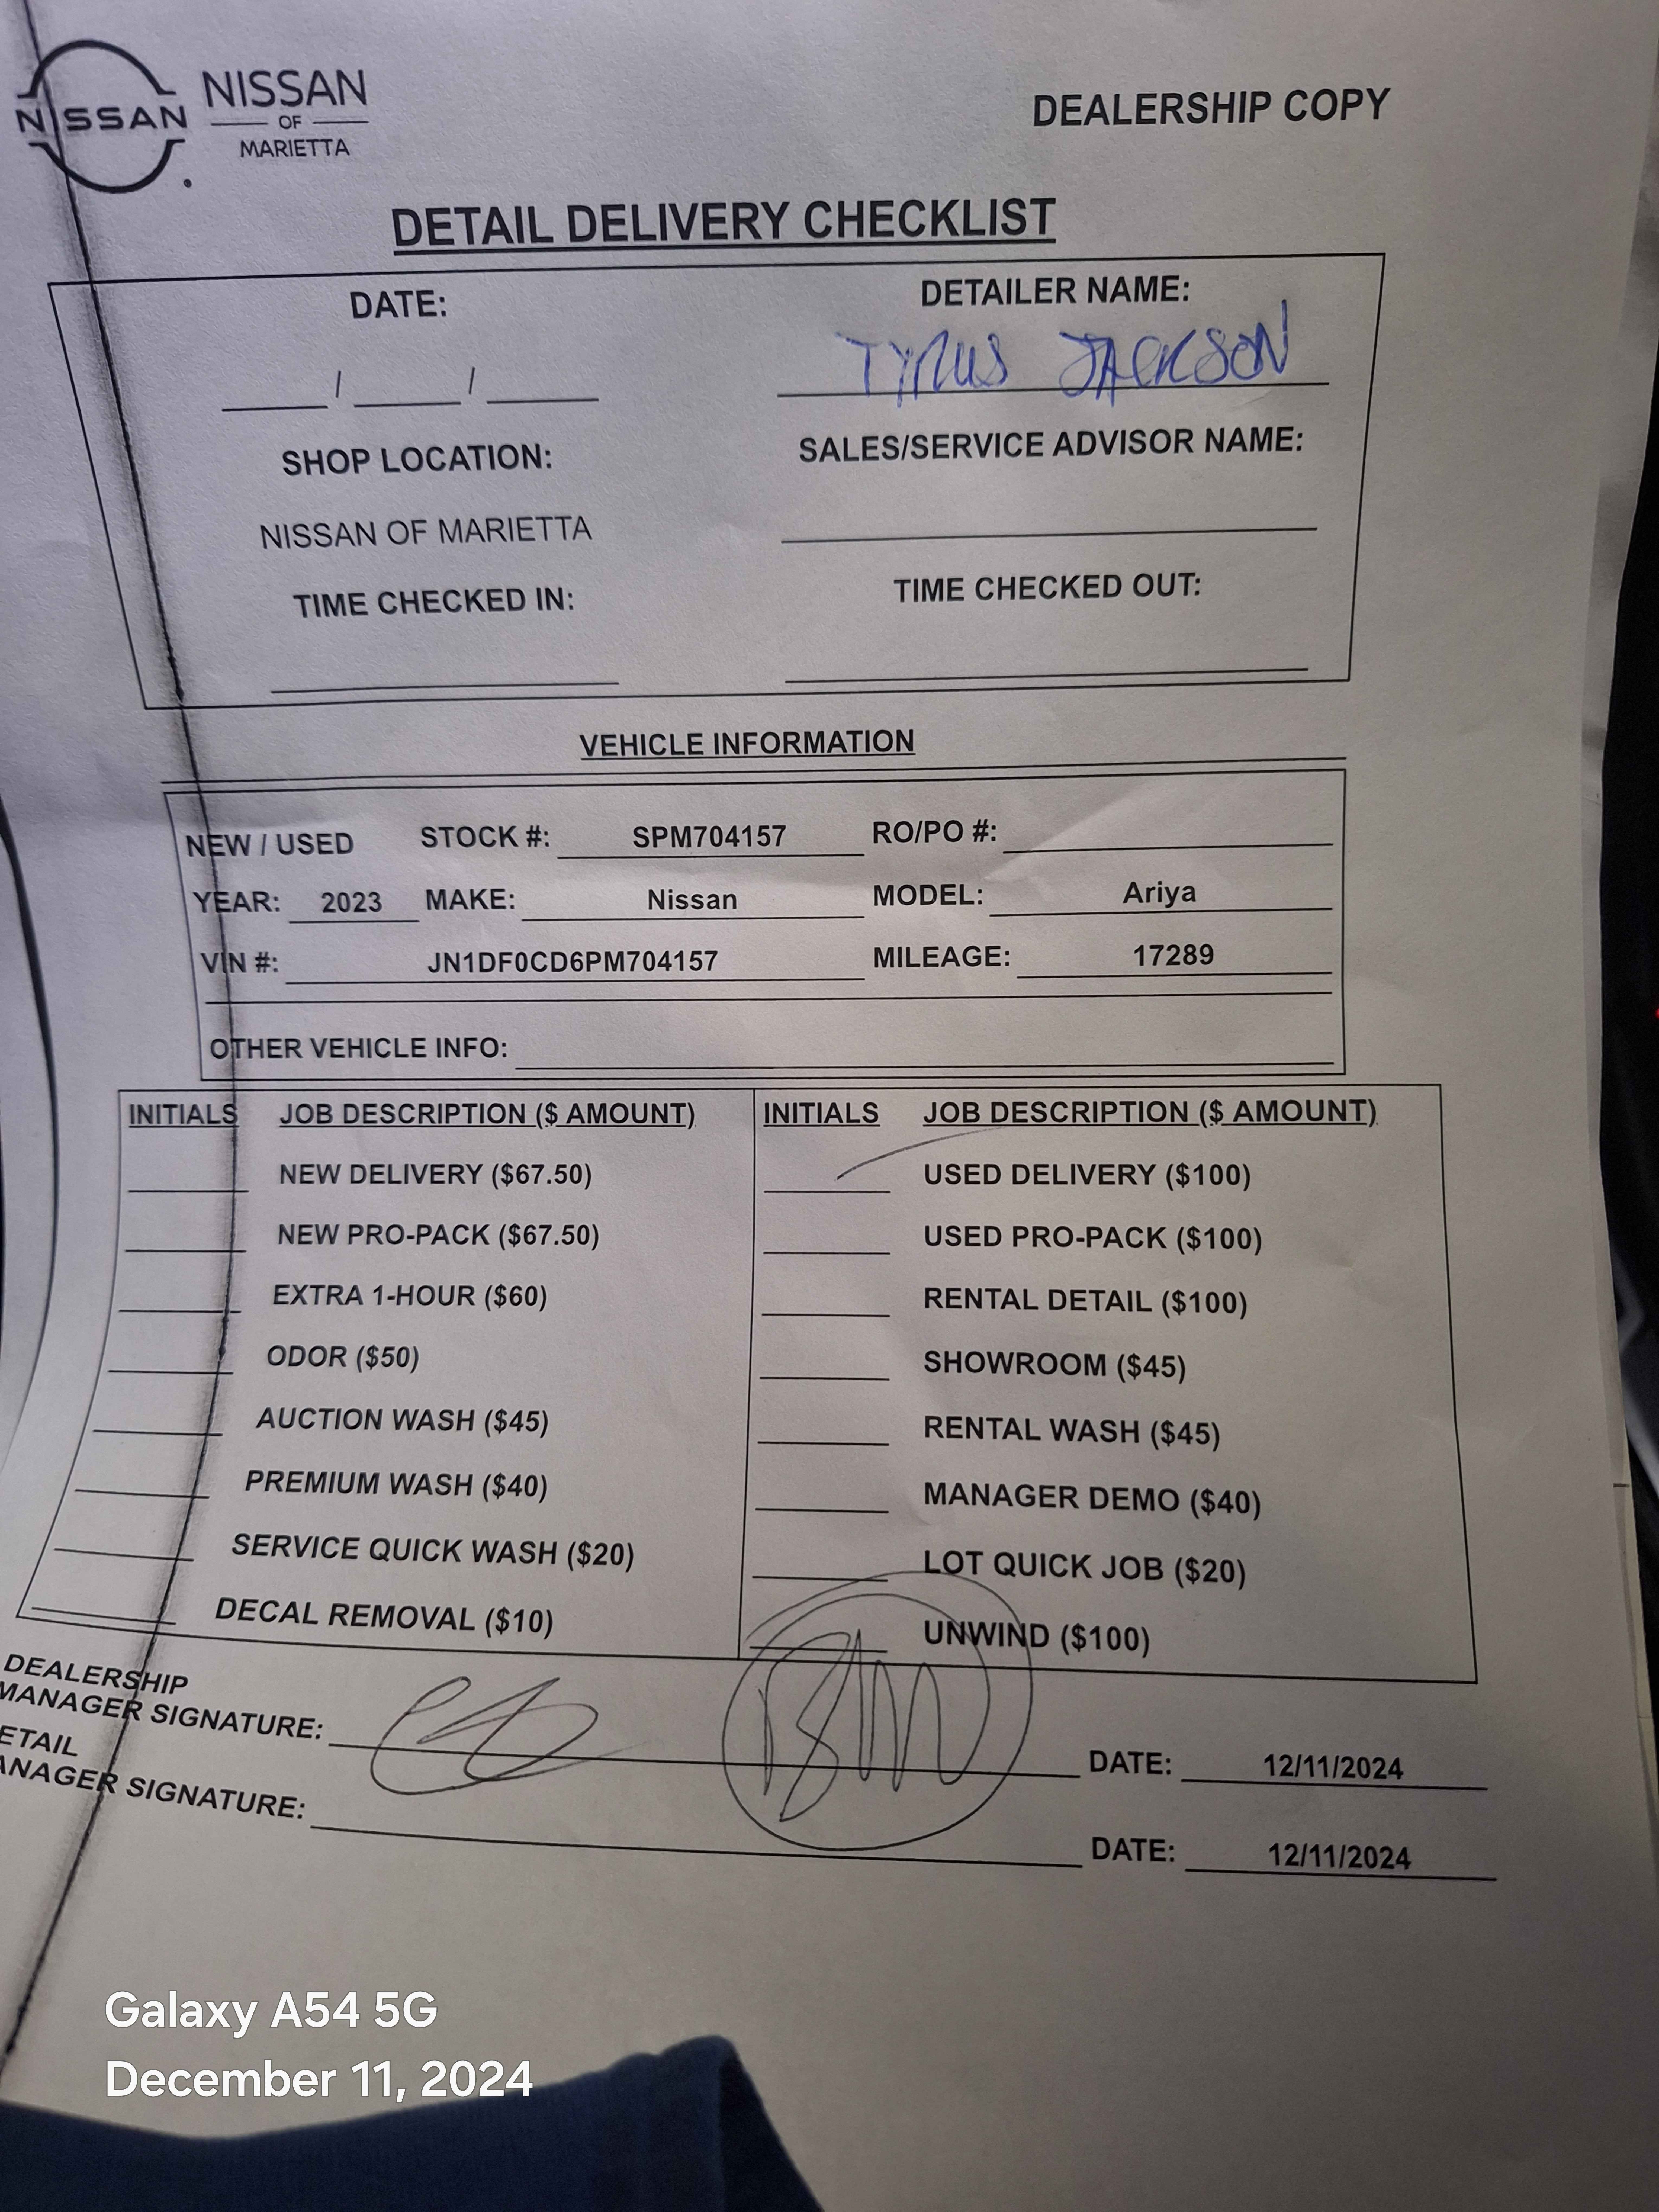 NISSAN
NISSAN
OF
MARIETTA
DEALERSHIP COPY
DETAIL DELIVERY CHECKLIST
DATE:
DETAILER NAME:
/ /
TYRUS JACKSON
SHOP LOCATION:
SALES/SERVICE ADVISOR NAME:
NISSAN OF MARIETTA
TIME CHECKED IN:
TIME CHECKED OUT:
VEHICLE INFORMATION
NEW / USED STOCK #: SPM704157 RO/PO #:
YEAR: 2023 MAKE: Nissan MODEL: Ariya
VIN #: JN1DF0CD6PM704157 MILEAGE: 17289
OTHER VEHICLE INFO:
INITIALS JOB DESCRIPTION ($ AMOUNT)
NEW DELIVERY ($67.50)
NEW PRO-PACK ($67.50)
EXTRA 1-HOUR ($60)
ODOR ($50)
AUCTION WASH ($45)
PREMIUM WASH ($40)
SERVICE QUICK WASH ($20)
DECAL REMOVAL ($10)
INITIALS JOB DESCRIPTION ($ AMOUNT)
USED DELIVERY ($100)
USED PRO-PACK ($100)
RENTAL DETAIL ($100)
SHOWROOM ($45)
RENTAL WASH ($45)
MANAGER DEMO ($40)
LOT QUICK JOB ($20)
UNWIND ($100)
DEALERSHIP
MANAGER SIGNATURE: DATE: 12/11/2024
ETAIL
ANAGER SIGNATURE: DATE: 12/11/2024
Galaxy A54 5G
December 11, 2024